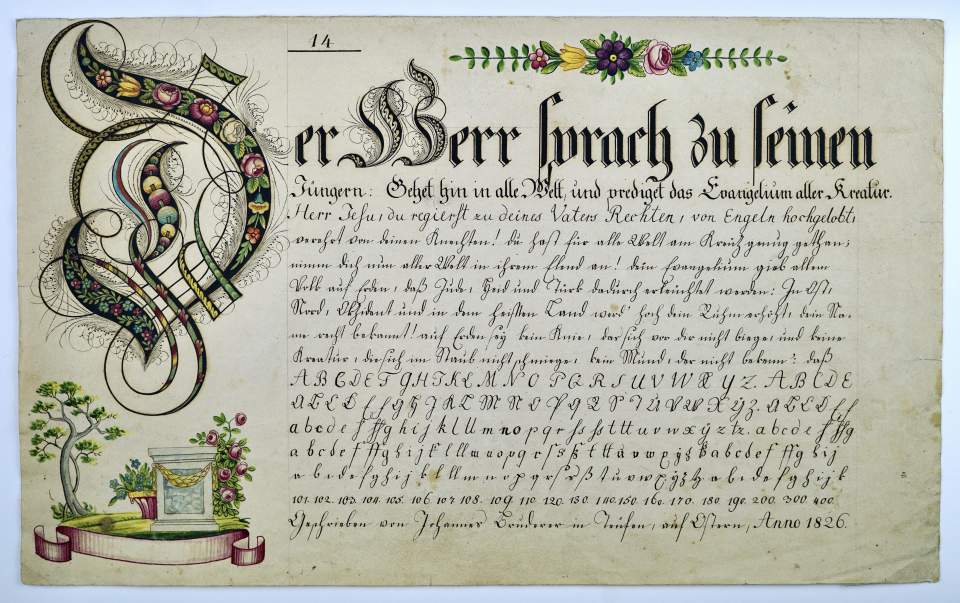 14
Der Herr sprach zu seinen
Jüngern: Gehet hin in alle Welt, und prediget das Evangelium aller Kreatur.
Herr Jesu, du regierst zu deines Vaters Rechten, von Engeln hochgelobt,
verehrt von deinen Knechten! du hast für alle Welt am Kreuz genug gethan;
nimm dich nun aller Welt in ihrem Elend an! dein Evangelium gieb allem
Volk auf Erden, daß Jude, Heid und Türk dadurch erleuchtet werden: In Ost,
Nord, Okzident und in dem heißten Land werd' hoch dein Ruhm erhöht, dein Na-
me recht bekannt! auf Erden sey kein Knie, der sich vor dir nicht biege, und keine
Kreatur, die sich im Staub nicht schmiege, kein Mund, der nicht bekenn': daß
A B C D E F G H I K L M N O P Q R S T U V W X Y Z. A B C D E
A B C D E f g h J K L M N O P Q R S T U V W X Y Z. A B C D E f
a b c d e f ff g h i j k l ll m n o p q r s ss st t tt u v w x ÿ z tz. a b c d e f ff g
a b c d e f ff g h i j k l ll m n o p q r s ss ß t tt u v w x ÿ z tz a b c d e f ff g h i j k
a b c d e f g h i j k l ll m n o p q r s ss ß t u v w x ÿ z tz a b c d e f g h i j k
101. 102. 103. 104. 105. 106. 107. 108. 109. 110. 120. 130. 140. 150. 160. 170. 180. 190. 200. 300. 400.
Geschrieben von Johannes Bruderer in Teufen, auf Ostern, Anno 1826.